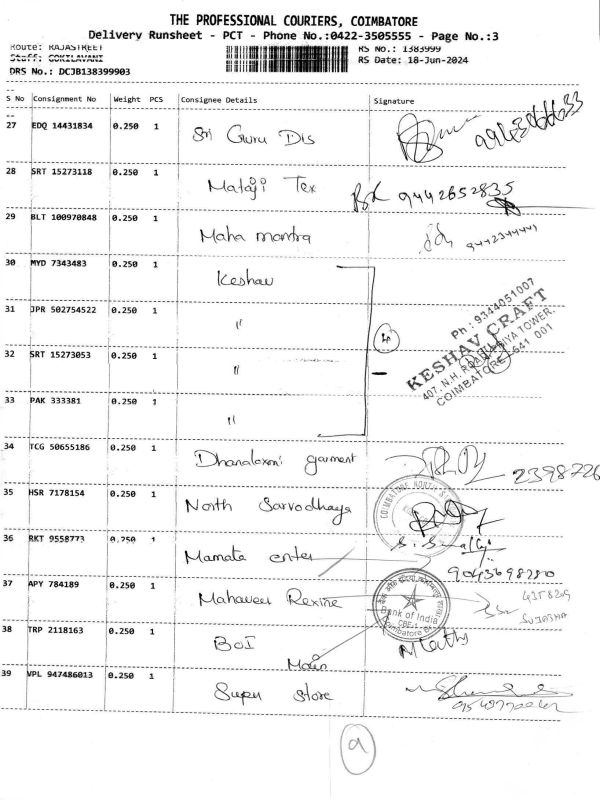 THE PROFESSIONAL COURIERS, COIMBATORE
Delivery Runsheet - PCT - Phone No.:0422-3505555 - Page No.:3
Route: RAJASTREET
RS No.: 1383999
Staff: GOKILAVANI
RS Date: 18-Jun-2024
DRS No.: DCJB138399903
S No Consignment No Weight PCS Consignee Details Signature
27 EDQ 14431834 0.250 1 Sri Guru Dis
28 SRT 15273118 0.250 1 Mataji Tex 9442652835
29 BLT 100970848 0.250 1 Maha mantra 9442344441
30 MYD 7343483 0.250 1 Keshav
31 JPR 502754522 0.250 1 "
32 SRT 15273053 0.250 1 "
33 PAK 333381 0.250 1 "
4
Ph : 9344051007
KESHAV CRAFT
407, N.H. ROAD, TOWER,
COIMBATORE-641 001
34 TCG 50655186 0.250 1 Dhanalaxmi garment 2398726
35 HSR 7178154 0.250 1 North Sarvodhaya
COIMBATORE NORTH
36 RKT 9558773 0.250 1 Mamata enter
37 APY 784189 0.250 1 Mahaveer Rexine
Bank of India
Coimbatore
38 TRP 2118163 0.250 1 BOI
Main
39 VPL 947486013 0.250 1 Super store
9